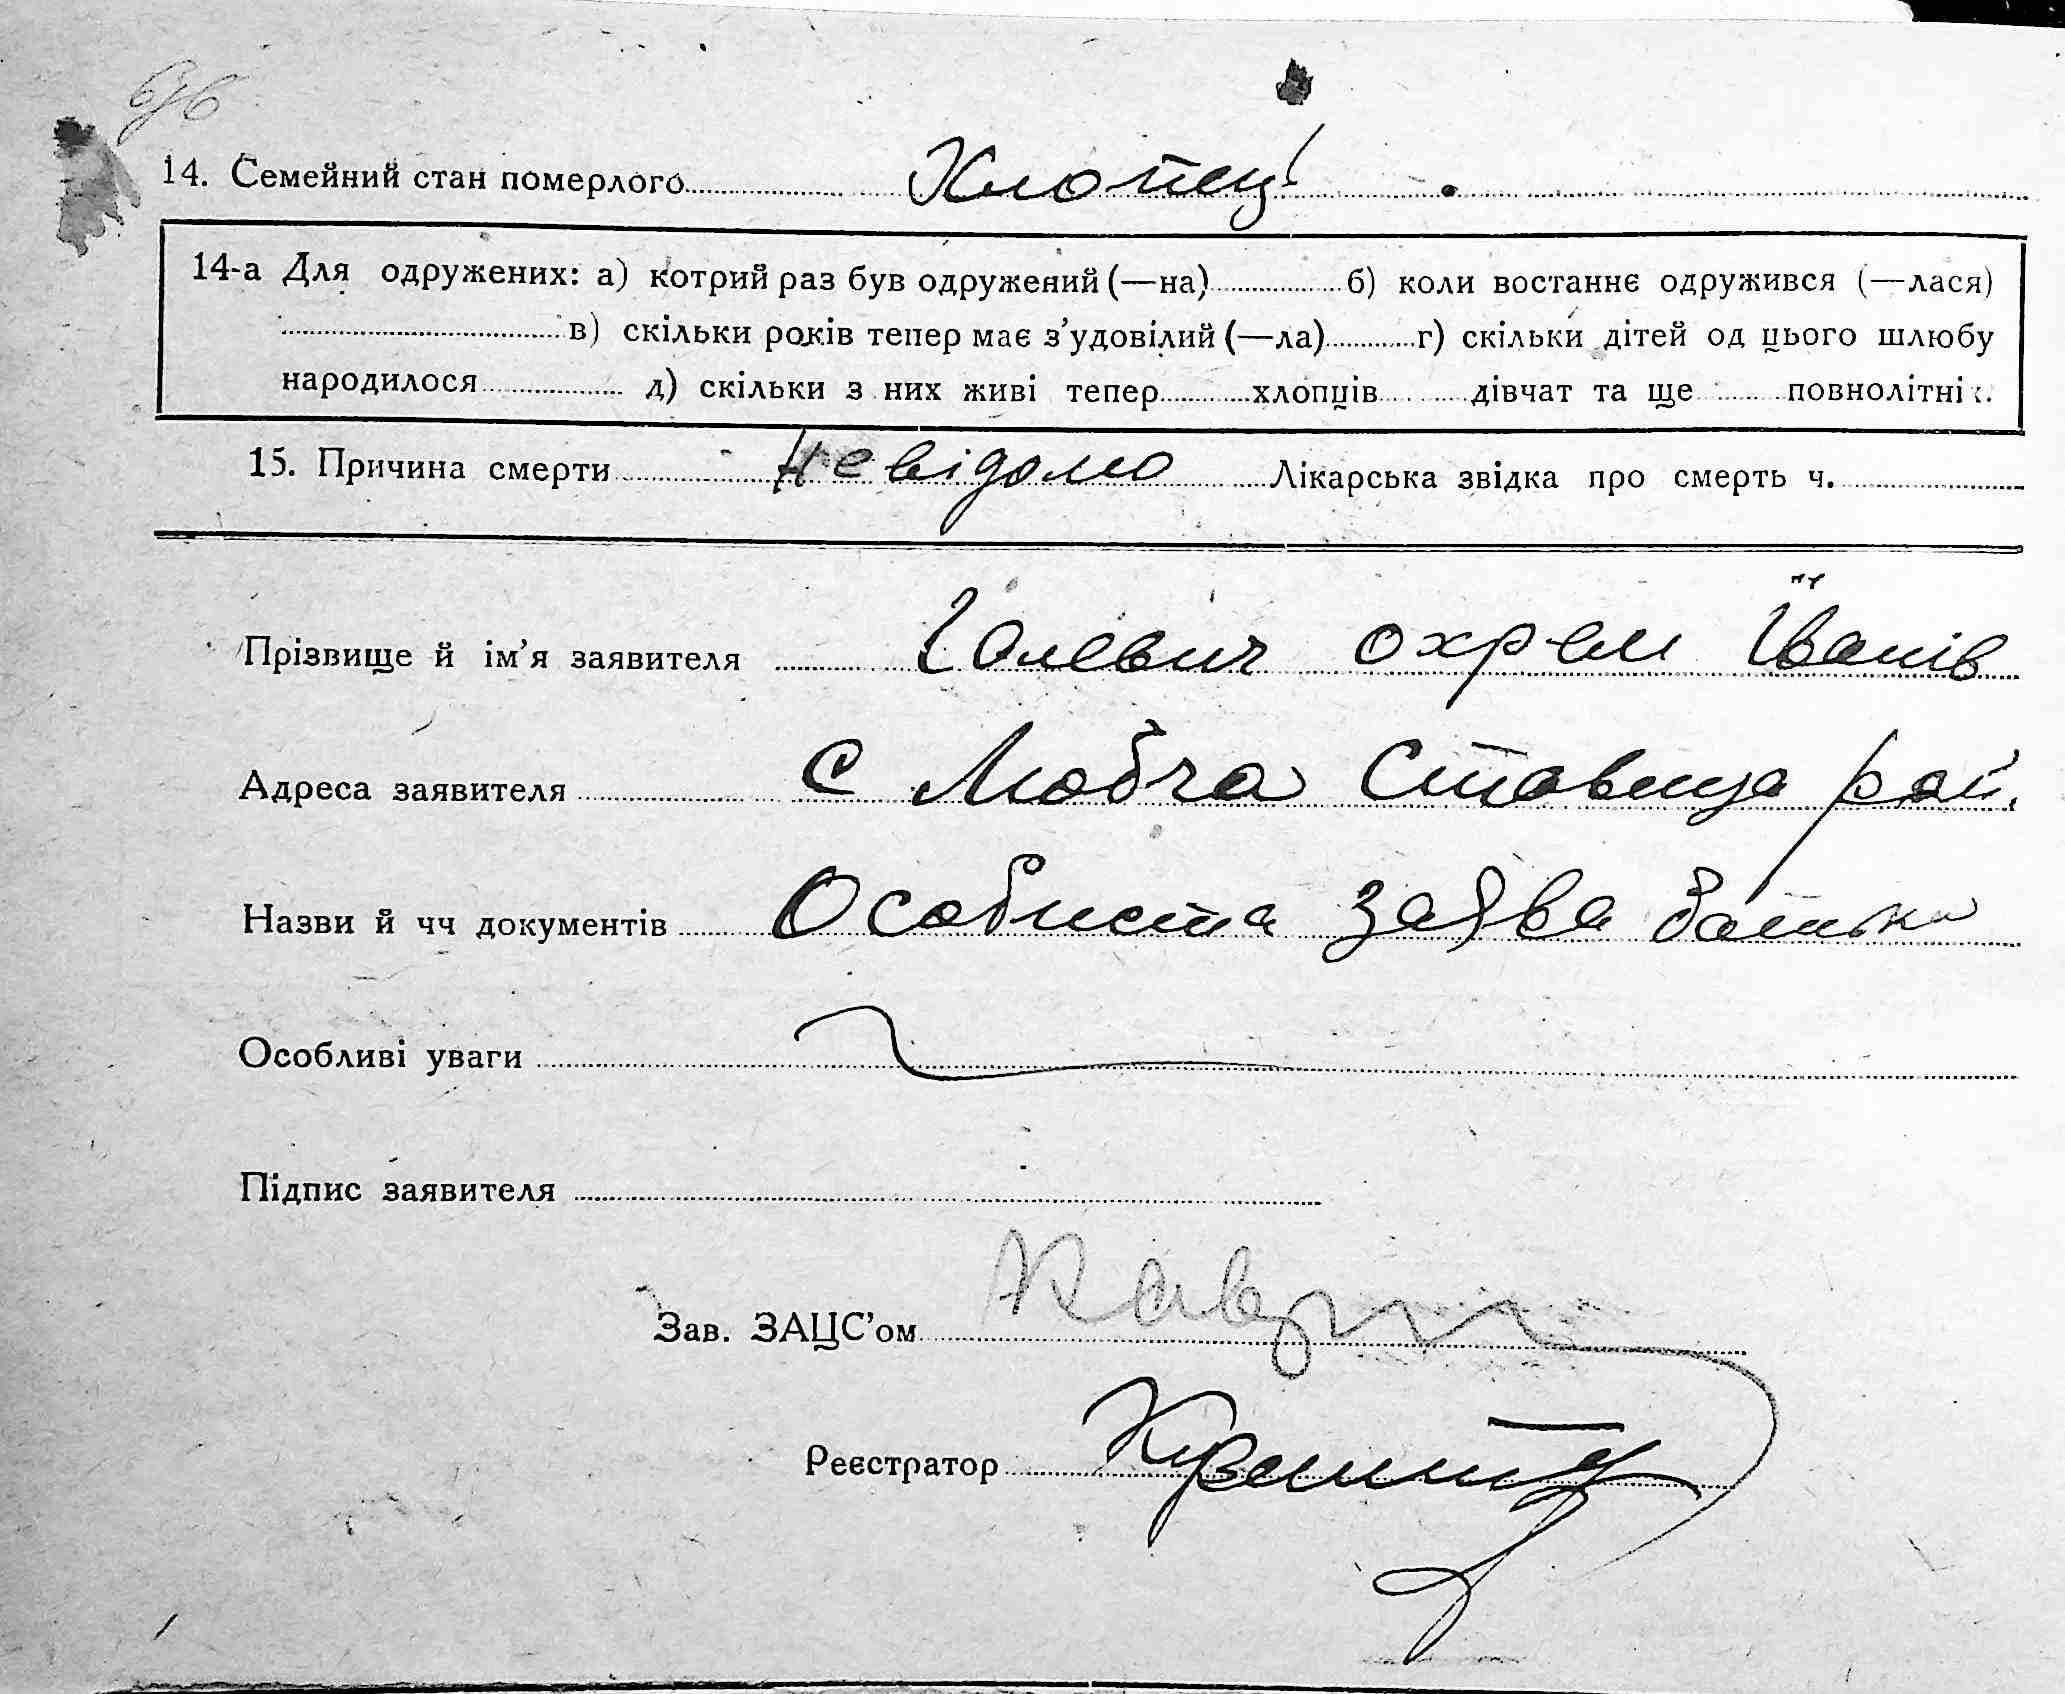 14. Семейний стан померлого Хлопец!
14-а Для одружених: а) котрий раз був одружений (—на) б) коли востаннє одружився (—лася)
в) скільки років тепер має з'удовілий (—ла) г) скільки дітей од цього шлюбу
народилося д) скільки з них живі тепер хлопців дівчат та ще повнолітніх.
15. Причина смерти Невідомо Лікарська звідка про смерть ч.
Прізвище й ім'я заявителя Галевич охрем Іванів
Адреса заявителя С Любча Ставища рай.
Назви й чч документів Особиста заява батька
Особливі уваги
Підпис заявителя
Зав. ЗАЦС'ом
Реєстратор